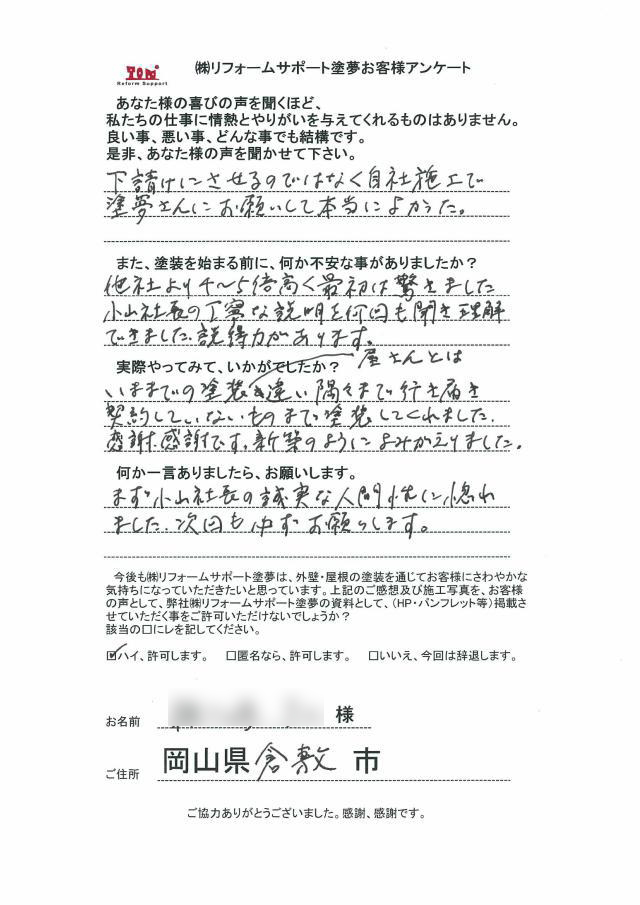 TOM
Reform Support
㈱リフォームサポート塗夢お客様アンケート
あなた様の喜びの声を聞くほど、
私たちの仕事に情熱とやりがいを与えてくれるものはありません。
良い事、悪い事、どんな事でも結構です。
是非、あなた様の声を聞かせて下さい。
下請けにさせるのではなく自社施工で
塗夢さんにお願いして本当によかった。
また、塗装を始まる前に、何か不安な事がありましたか？
他社より4～5倍高く最初は驚きました
小山社長の丁寧な説明を何回も聞き理解
できました。説得力があります。
実際やってみて、いかがでしたか？
屋さんとは
いままでの塗装違い隅々まで行き届き
契約していないものまで塗装してくれました。
感謝、感謝です。新築のようによみがえりました。
何か一言ありましたら、お願いします。
まず小山社長の誠実な人間性に惚れ
ました。次回も必ずお願いします。
今後も㈱リフォームサポート塗夢は、外壁・屋根の塗装を通じてお客様にさわやかな
気持ちになっていただきたいと思っています。上記のご感想及び施工写真を、お客様
の声として、弊社㈱リフォームサポート塗夢の資料として、（HP・パンフレット等）掲載さ
せていただく事をご許可いただけないでしょうか？
該当の□にレを記してください。
☑ハイ、許可します。 □匿名なら、許可します。 □いいえ、今回は辞退します。
お名前 様
ご住所 岡山県倉敷市
ご協力ありがとうございました。感謝、感謝です。